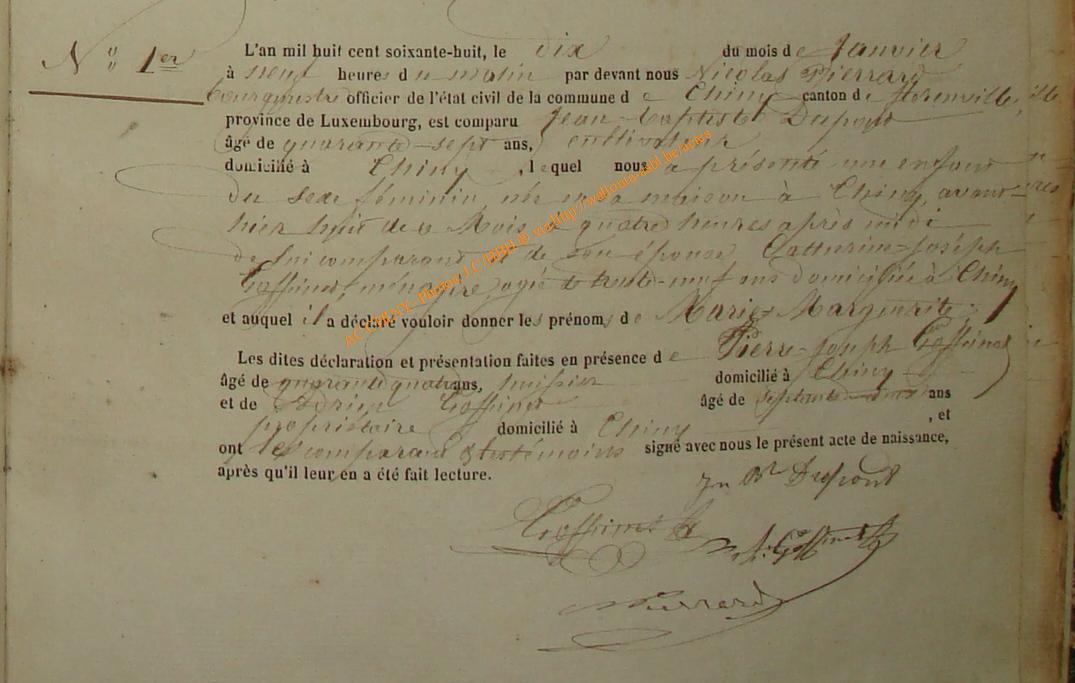 N° 1er
L'an mil huit cent soixante-huit, le dix du mois de Janvier
à neuf heures du matin par devant nous Nicolas Pierrard
bourgmestre officier de l'état civil de la commune de Chiny canton de florenville,
province de Luxembourg, est comparu Jean-Baptiste Dupont
âgé de quarante-sept ans, cultivateur
domicilié à Chiny, lequel nous a présenté une enfant
du sexe féminin née en sa maison à Chiny, avant
hier huit de ce Mois, à quatre heures après midi
de lui comparant et de son épouse Catherine-Joseph
Goffinet, ménagère, agée de trente-neuf ans domiciliée à Chiny
et auquel il a déclaré vouloir donner les prénoms de Marie-Marguerite;
Les dites déclaration et présentation faites en présence de Pierre-Joseph Goffinet
âgé de quarante quatre ans, huissier domicilié à Chiny
et de Adrien Goffinet âgé de septante-deux ans
propriétaire domicilié à Chiny, et
ont les comparant & les témoins signé avec nous le présent acte de naissance,
après qu'il leur en a été fait lecture.
Jn Bte Dupont
Goffinet
A. Goffinet
Pierrard